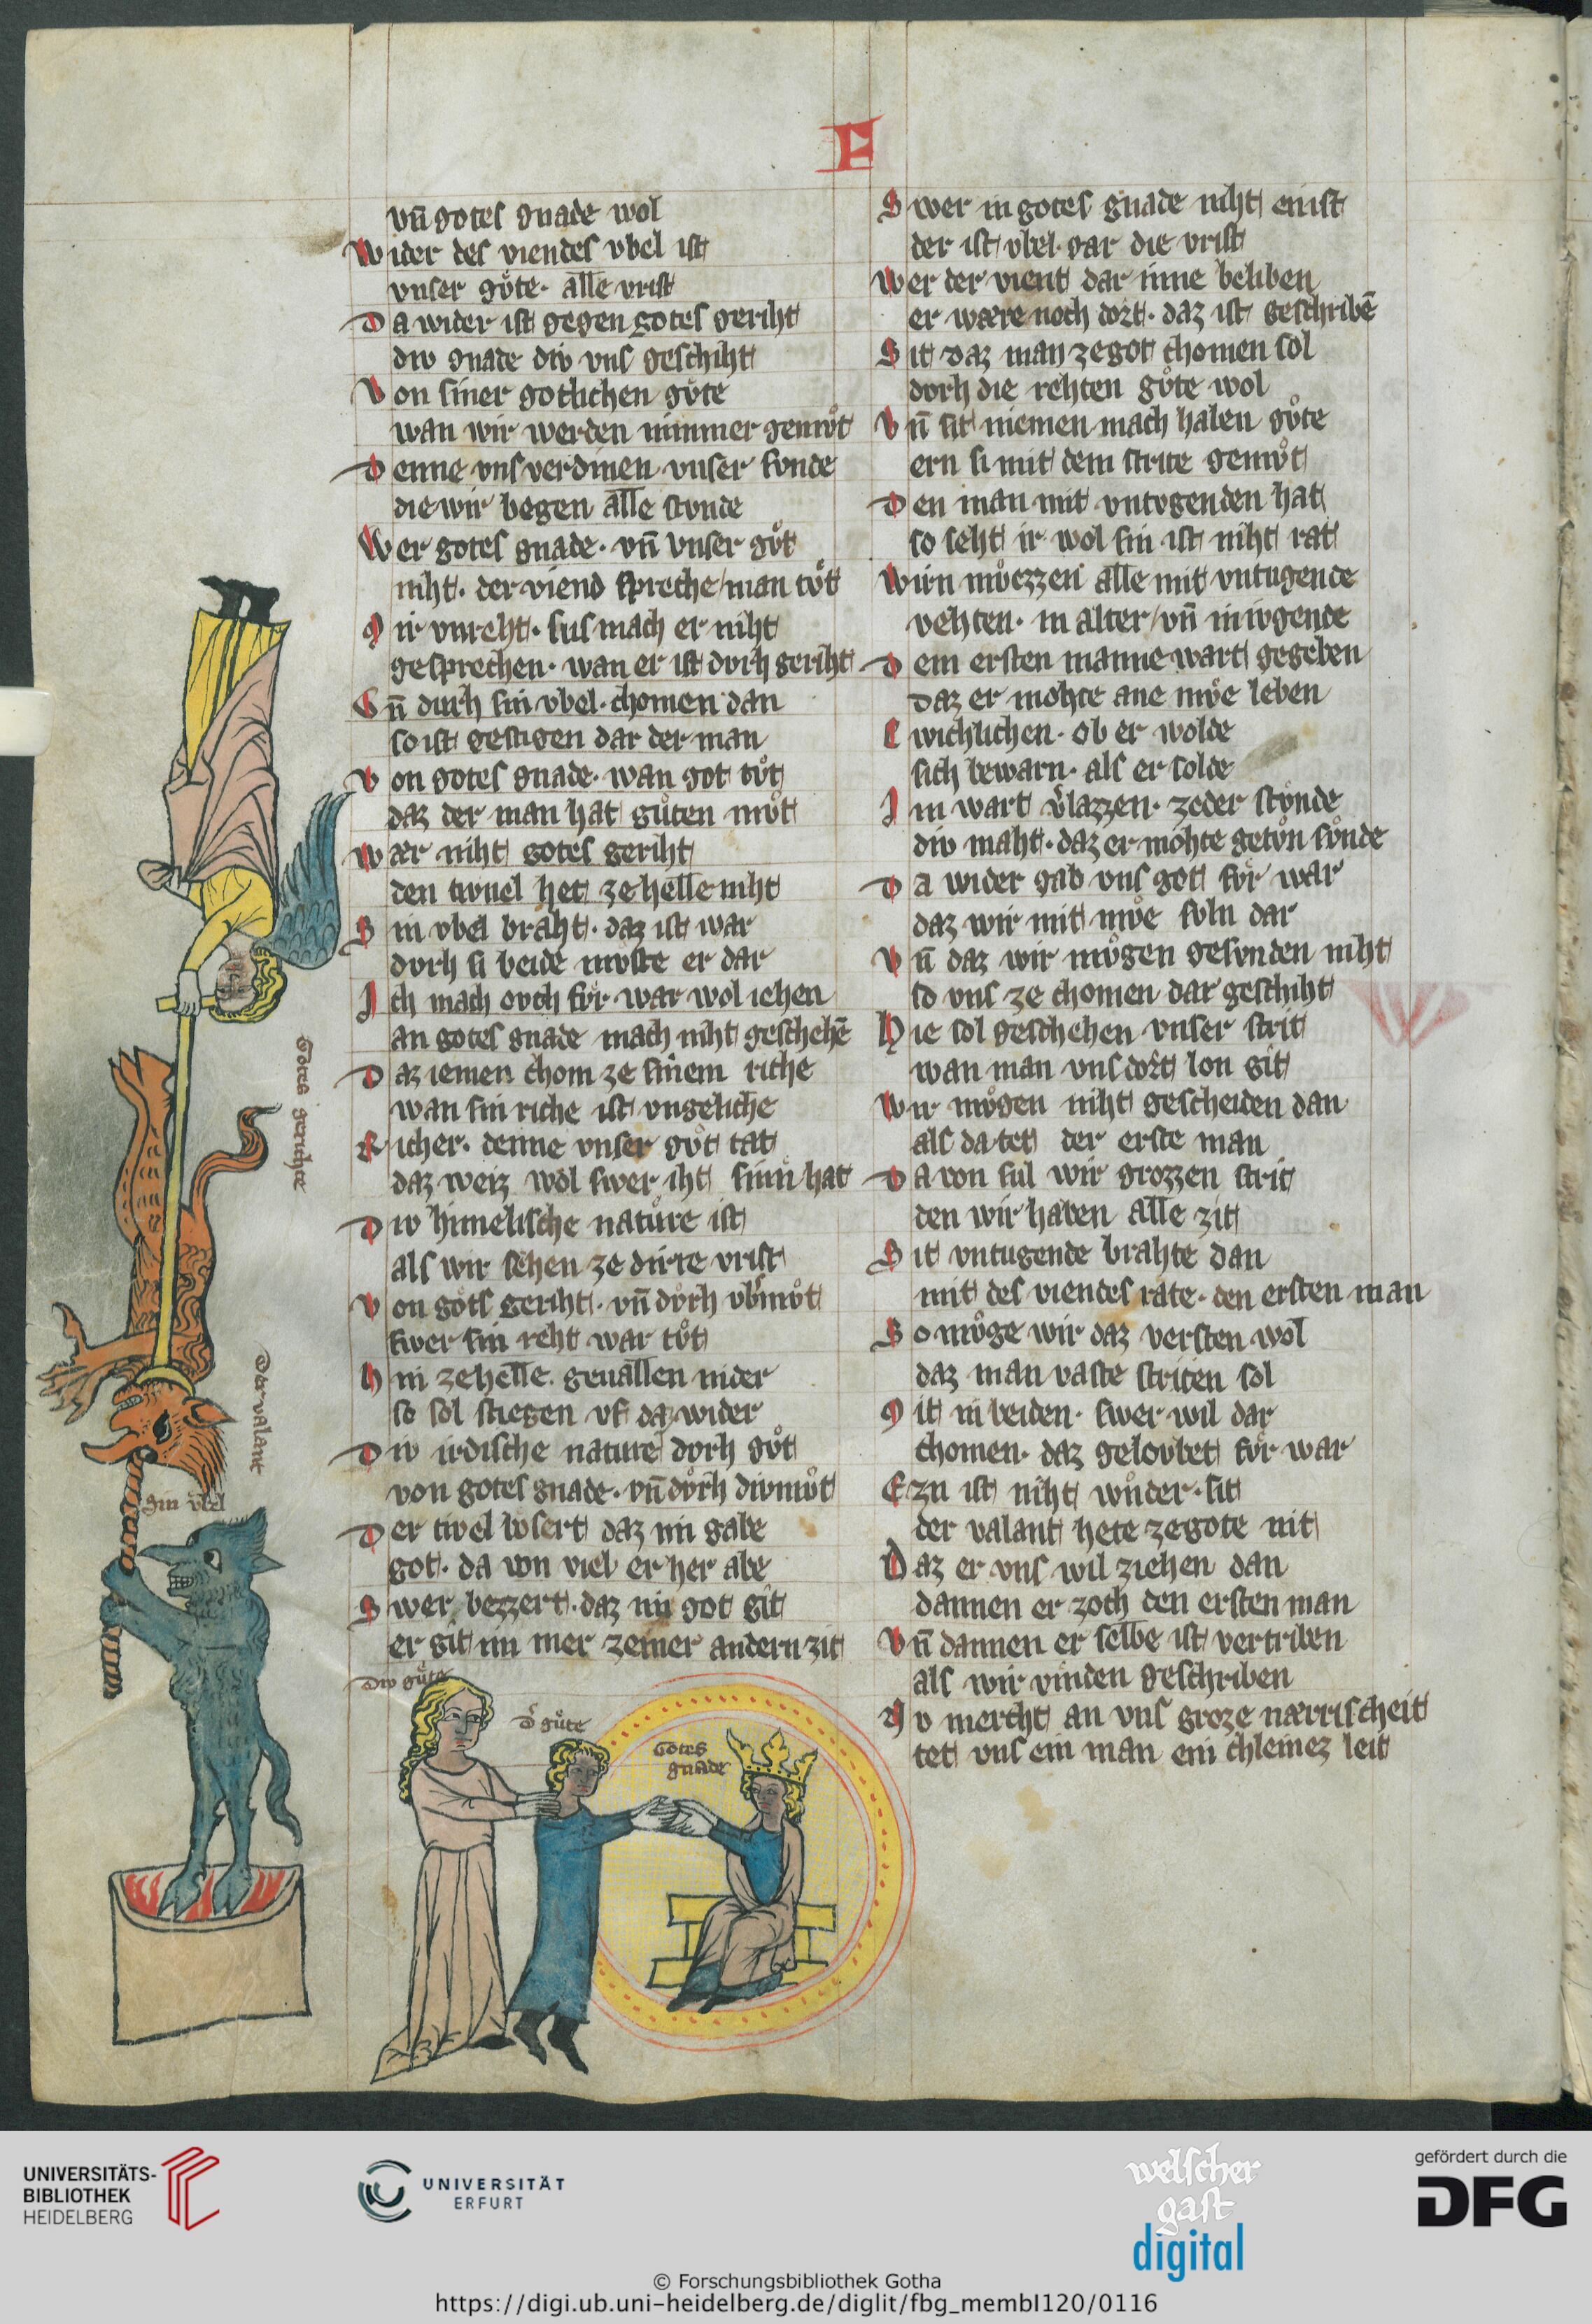 E
vn̄ gotes gnade wol
Wider des viendes vbel ist
vnser gvͦte· alle vrist
Da wider ist gegen gotes geriht
div gnade div vns geschiht
Von siner gotlichen gvͦte
wan wir werden nimmer gemvͦt
Denne vns verdinen vnser svnde
die wir begen alle stvnde
Wer gotes gnade· vn̄ vnser gvͦt
niht· der viend spreche man tvͦt
Mir vnreht· sus mach er niht
gesprechen· wan er ist dvrch geriht
Vn̄ durch sin vbel· chomen dan
so ist gestigen dar der man
Von gotes gnade· wan got tvͦt
daz der man hat guͦten mvͦt
Wær niht gotes geriht
den tivuel het ze helle niht
Sin vbel braht· daz ist war
dvrh si beide mvste er dar
Ich mach ovch fvͦr war wol iehen
an gotes gnade mach niht geschehē
Daz iemen chom ze sinem riche
wan sin riche ist vngeliche
Richer· denne vnser gvͦt tat
daz weiz wol swer iht sinn hat
Div himelische natuͦre ist
als wir sehen ze dirre vrist
Von gots geriht· vn̄ dvrh vb̓mvͦt
swer sin reht war tvͦt
Hin ze helle· geuallen nider
so sol stiegen vf da wider
Div irdische nature dvrh gvͦt
von gotes gnade· vn̄ dvͦrh divmvͦt
Der tivel bosert daz im gabe
got· da von viel er her abe
Swer bezzert· daz im got git
er git im mer zeiner andern zit
Swer in gotes gnade niht enist
der ist vbel· gar die vrist
Wer der vient dar inne beliben
er wære noch dort· daz ist geschribē
Sit daz man ze got chomen sol
dvrh die rehten gvͦte wol
Vn̄ sit niemen mach haben gvͦte
ern si mit dem strite gemvͦt
Den man mit vntvgenden hat
so seht ir wol sin ist niht rat
Wirn mvͦezzen alle mit vntugende
vehten· in alter vn̄ in ivgende
Dem ersten manne wart gegeben
daz er mohte ane mvͦe leben
Ewichlichen· ob er wolde
sich bewarn· als er solde
Im wart v̓lazzen· zeder stvͦnde
div maht· daz er mohte getvͦn svͦnde
Da wider gab vns got fvͦr war
daz wir mit mvͦe svln dar
Vn̄ daz wir mvͦgen gesvnden niht
so vns ze chomen dar geschiht
Hie sol geschehen vnser strit
wan man vns dort lon git
Wir mvͦgen niht gescheiden dan
als da tet der erste man
Da von sul wir grozzen strit
den wir haben alle zit
Sit vntugende brahte dan
mit des viendes rate· den ersten man
So mvͦge wir daz versten wol
daz man vaste striten sol
Mit in beiden· swer wil dar
chomen· daz gelovbet fvͦr war
Ezn ist niht wuͦnder· sit
der valant hete ze gote nit
Daz er vns wil ziehen dan
dannen er zoch den ersten man
Vn̄ dannen er selbe ist vertriben
als wir vinden geschriben
Nv mercht an vns groze nærrischeit
tet vns ein man ein chleinez leit
Gotes gerichte
Der valant
Sin vbel
Div guͦte
d̓ guͦte
Gotes
gnade
UNIVERSITÄTS-
BIBLIOTHEK
HEIDELBERG
UNIVERSITÄT
ERFURT
welscher
gast
digital
gefördert durch die
DFG
© Forschungsbibliothek Gotha
https://digi.ub.uni-heidelberg.de/diglit/fbg_membI120/0116